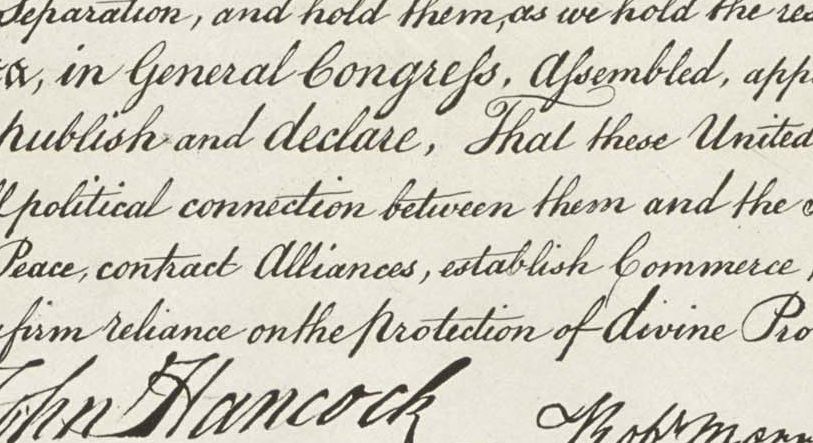 Separation, and hold them, as we hold the res
ca, in General Congreſs, Aſsembled, app
publish and declare, That these United
ll political connection between them and the S
Peace, contract Alliances, establish Commerce,
firm reliance on the protection of divine Pro
John Hancock
Robt Morr